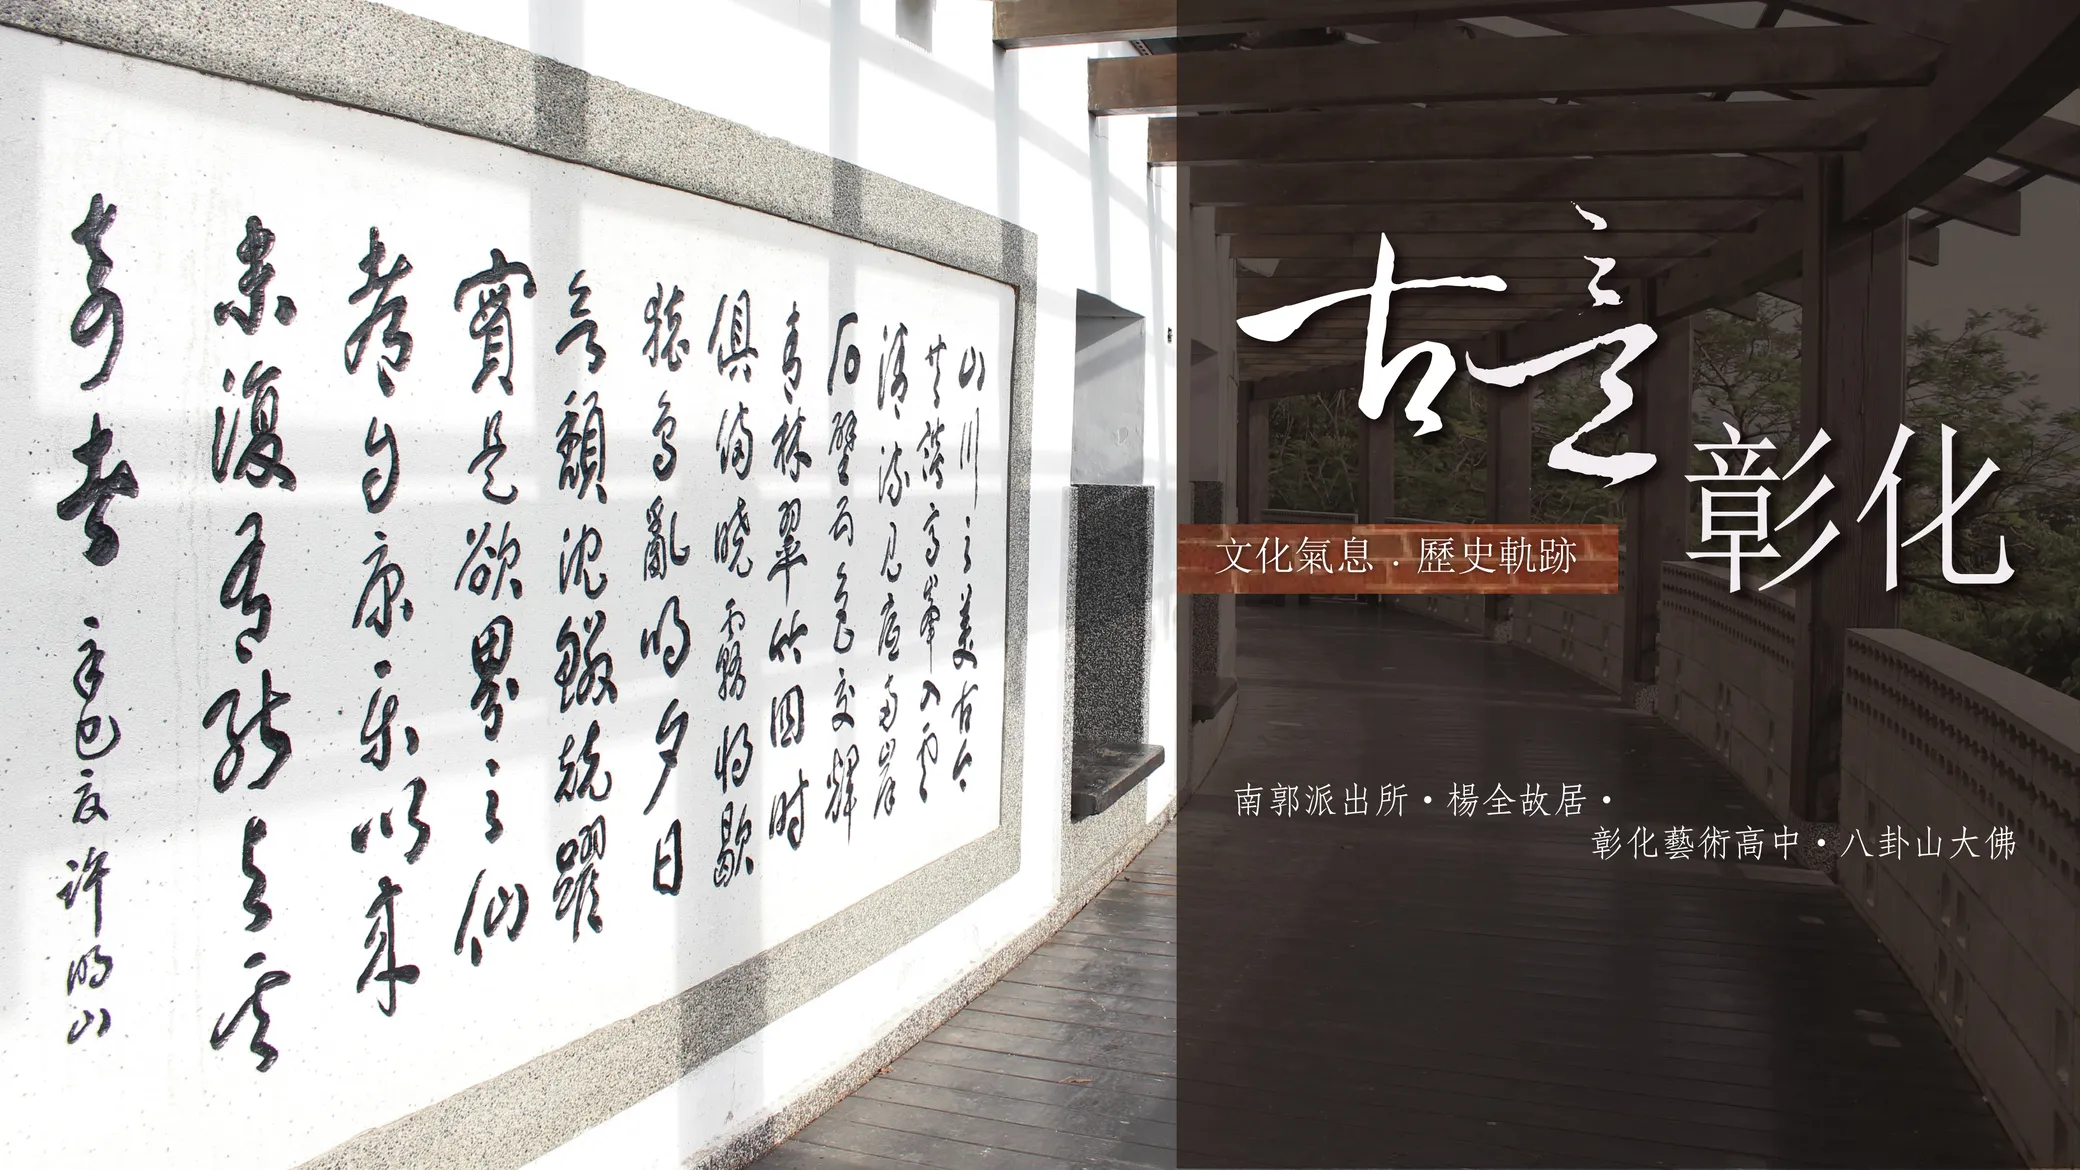 山川之美古今
共談高峯入雲
清流見底兩岸
石壁五色交輝
青林翠竹四時
俱備曉霧將歇
猿鳥亂鳴夕日
欲頹沈鱗競躍
實是欲界之仙
都自康樂以來
未復有能與其
奇者 辛巳夏 許明山
古意
彰化
文化氣息.歷史軌跡
南郭派出所•楊全故居•
彰化藝術高中•八卦山大佛